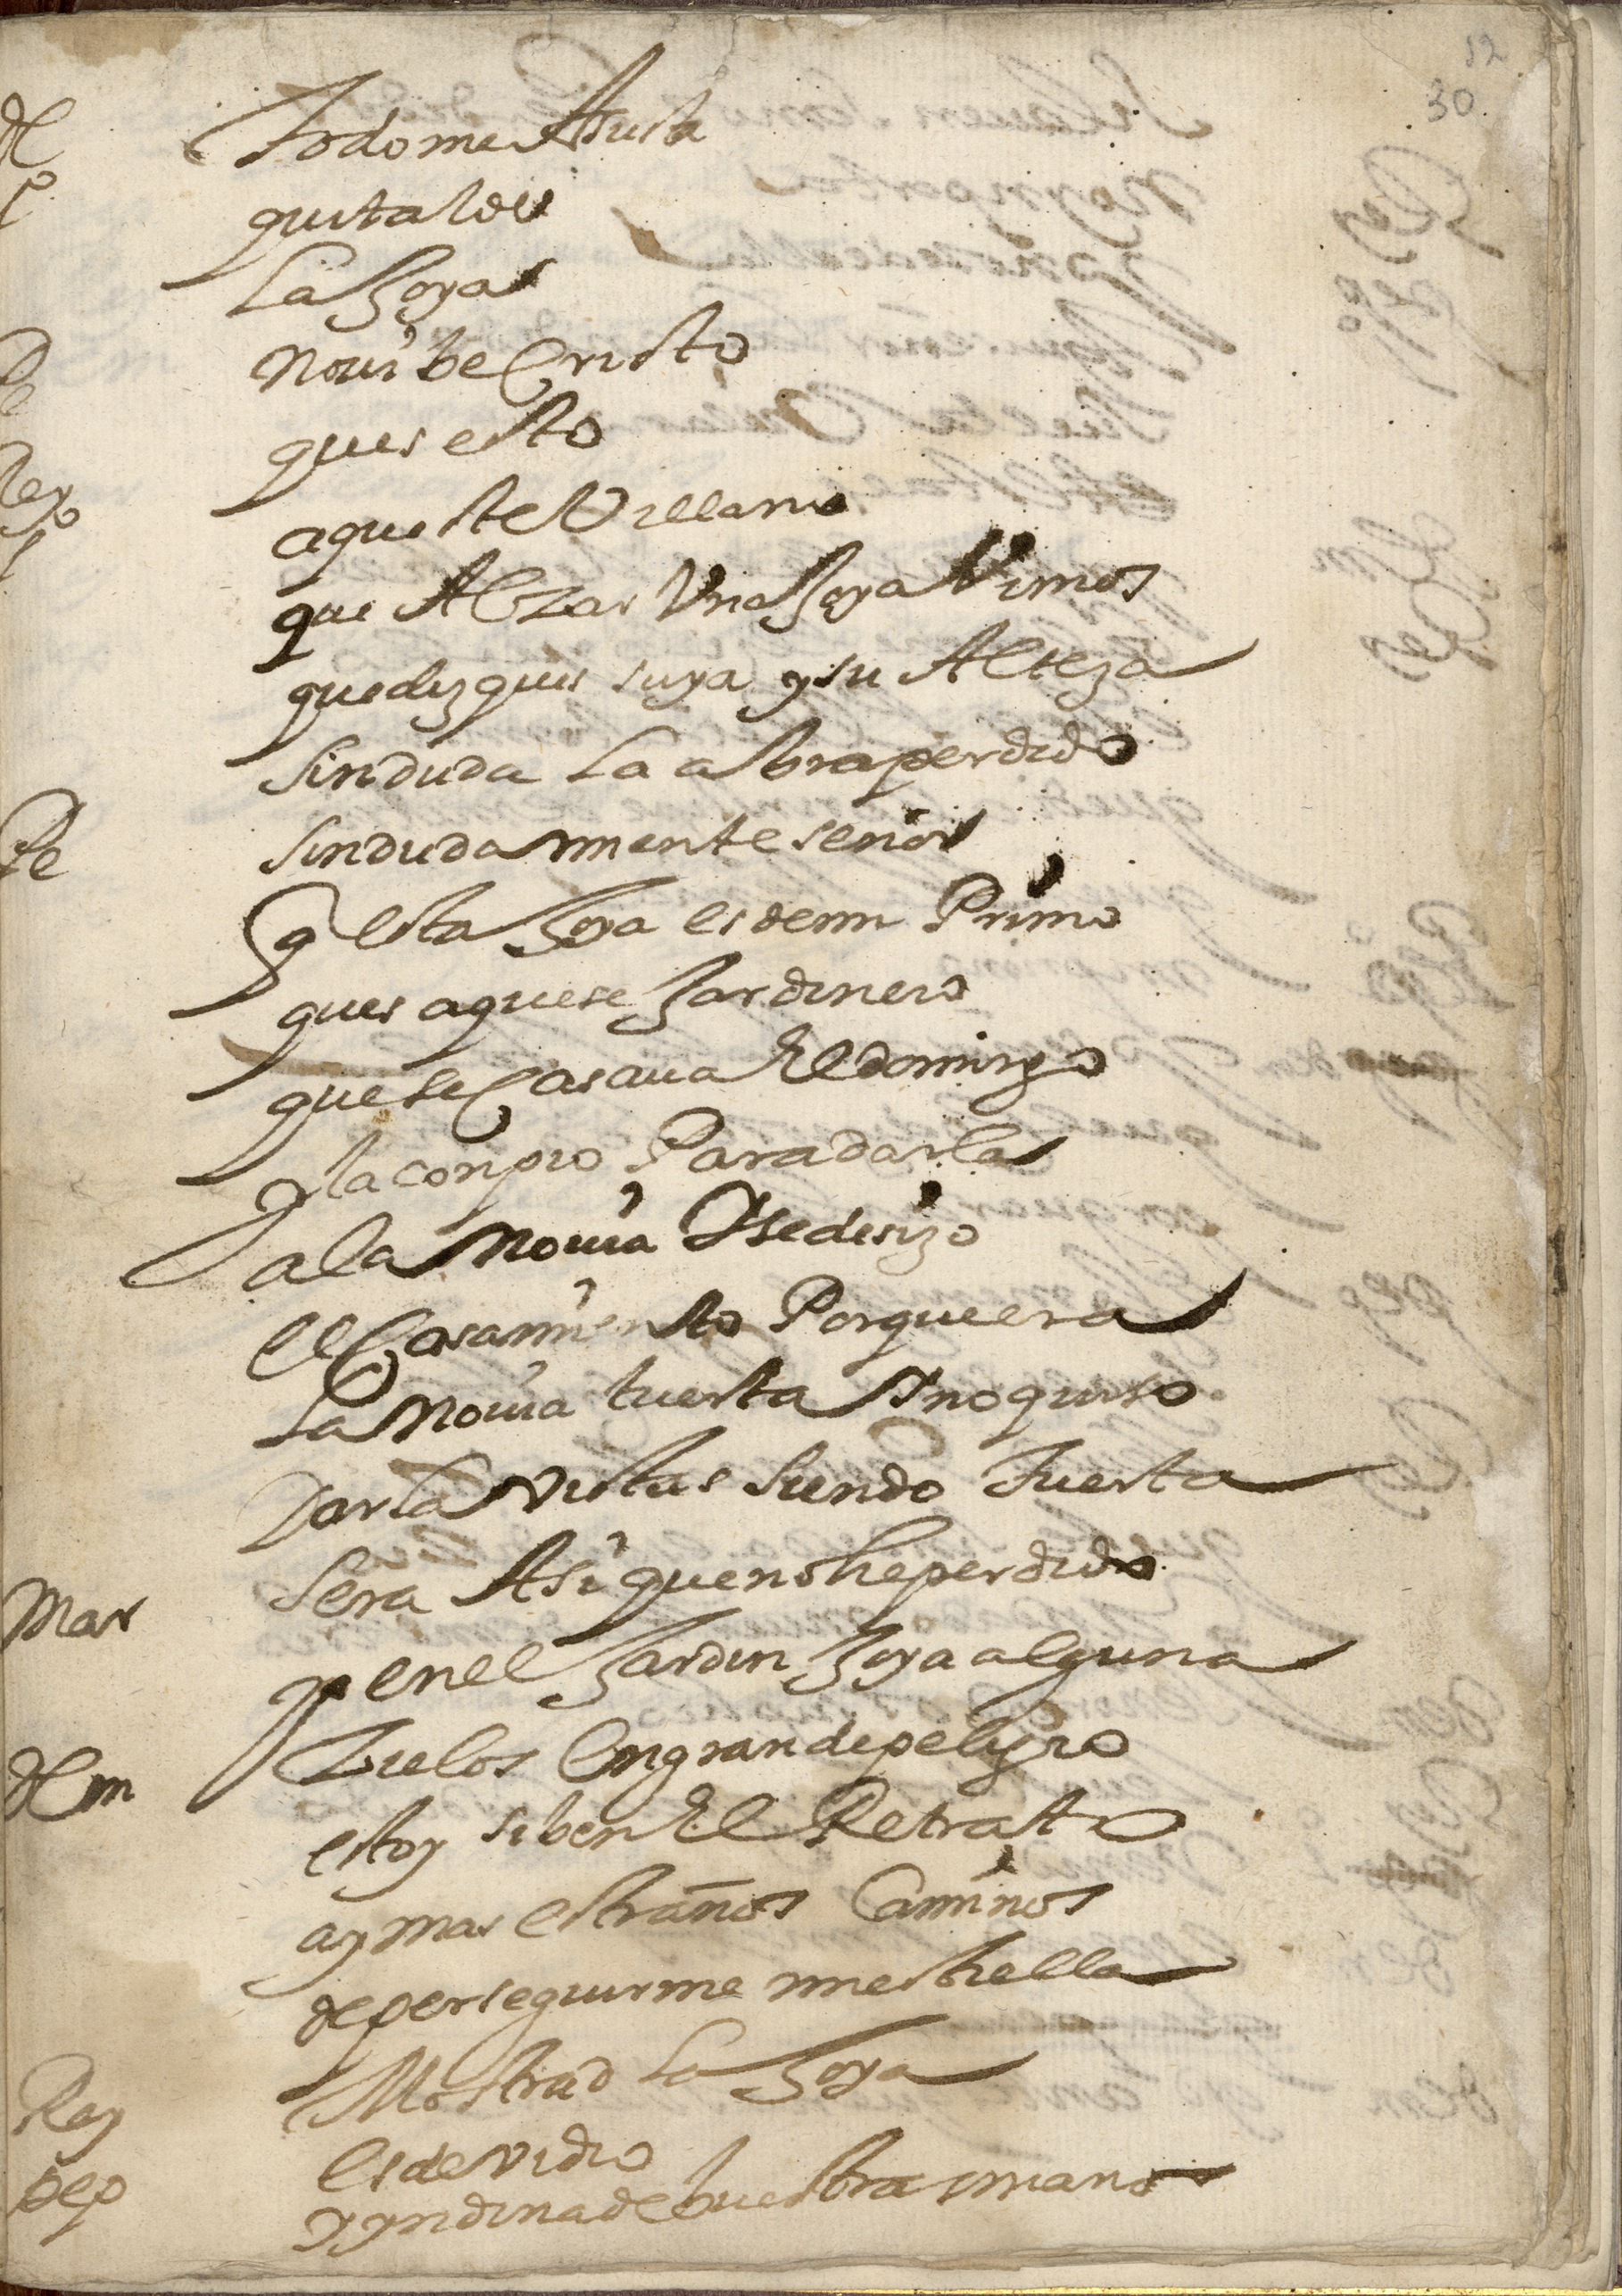 52
30
Todo me Asusta
quitalde
La Joya
No vibe Cristo
ques esto
aqueste Villano
que Alzar Una Joya Vimos
que diz ques suya y su Alteza
sin duda La abra perdido
sin duda mente señor
q esta Joya es de mi Primo
ques aquese Jardinero
que se Casava El domingo
y la conpro Para darla
a la Novia I se desizo
el Casamiento Porque era
La Novia tuerta I no quiso
Darla vistas siendo Tuerta
Mar Sera Asi que no he perdido
yo en el Jardin Joya alguna
Zielos En grande peligro
estoy si ben El Retrato
ay mas estraños Caminos
de perseguirme mi estrella
Rey Mostrad La Joya
Pep es de vidro
y yndina de vuestra mano